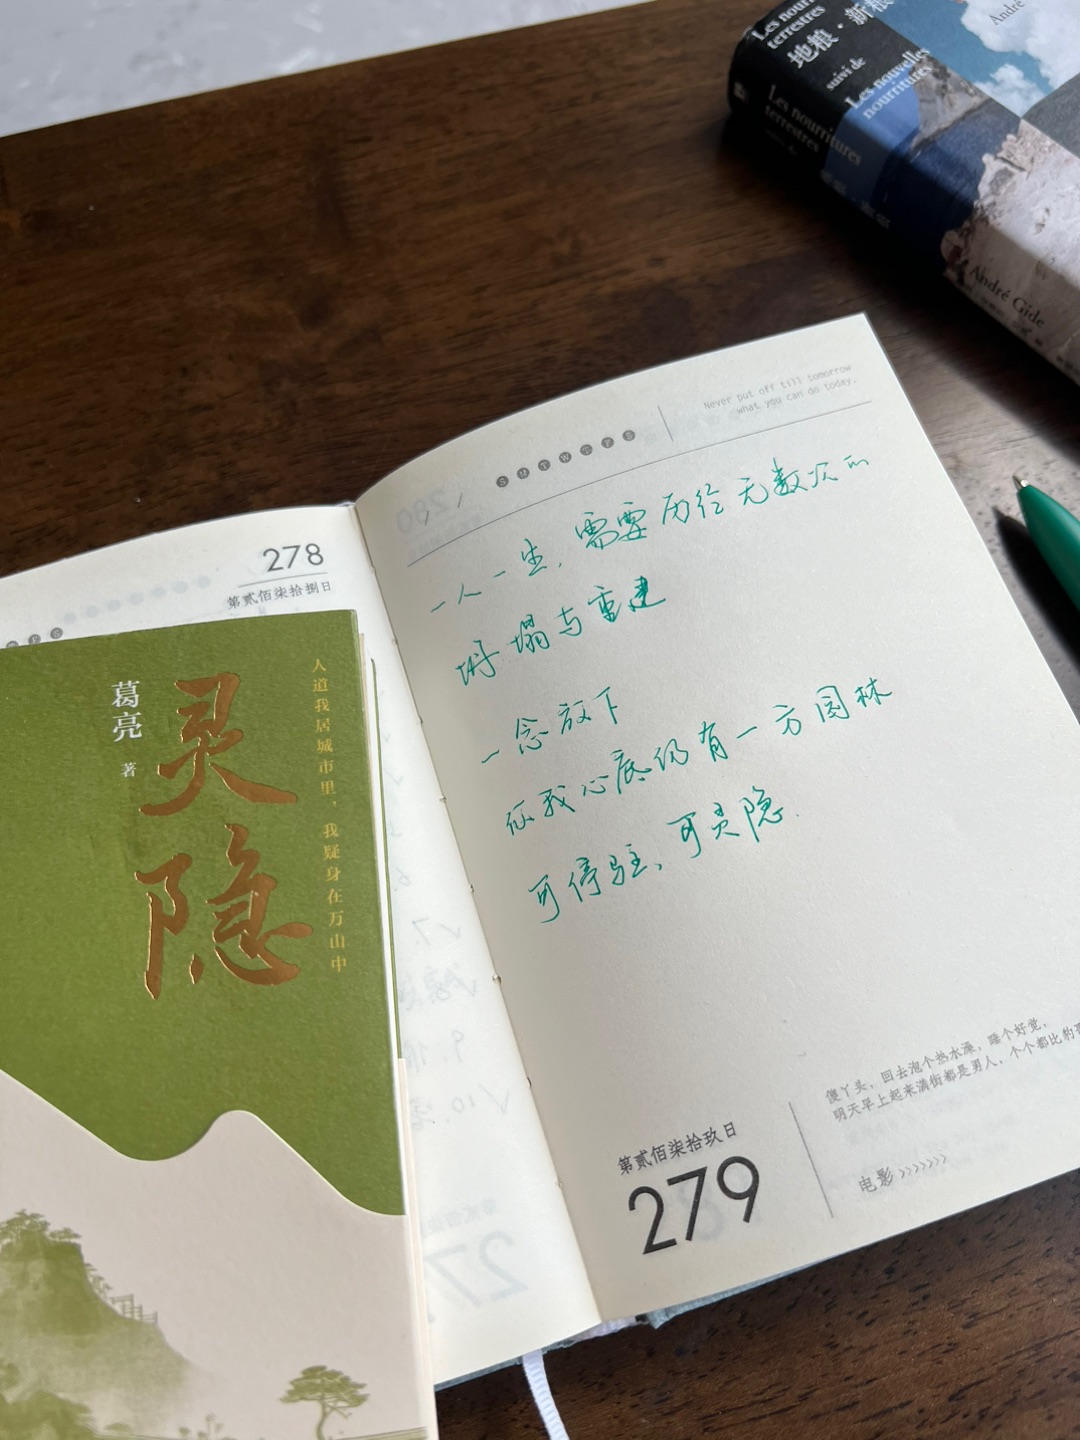 Les nourritures
terrestres
地粮·新粮
suivi de
Les nouvelles
nourritures
André
Les nourritures
terrestres
André Gide
Never put off till tomorrow
what you can do today.
S M T W T F S
一人一生,需要历经无数次的
坍塌与重建
一念放下
似我心底仍有一方园林
可停驻,可灵隐
第贰佰柒拾玖日
279
傻丫头,回去泡个热水澡,睡个好觉,
明天早上起来满街都是男人,个个都比豹
电影 >>>>>>>
278
第贰佰柒拾捌日
人道我居城市里,我疑身在万山中
灵隐
葛亮
著